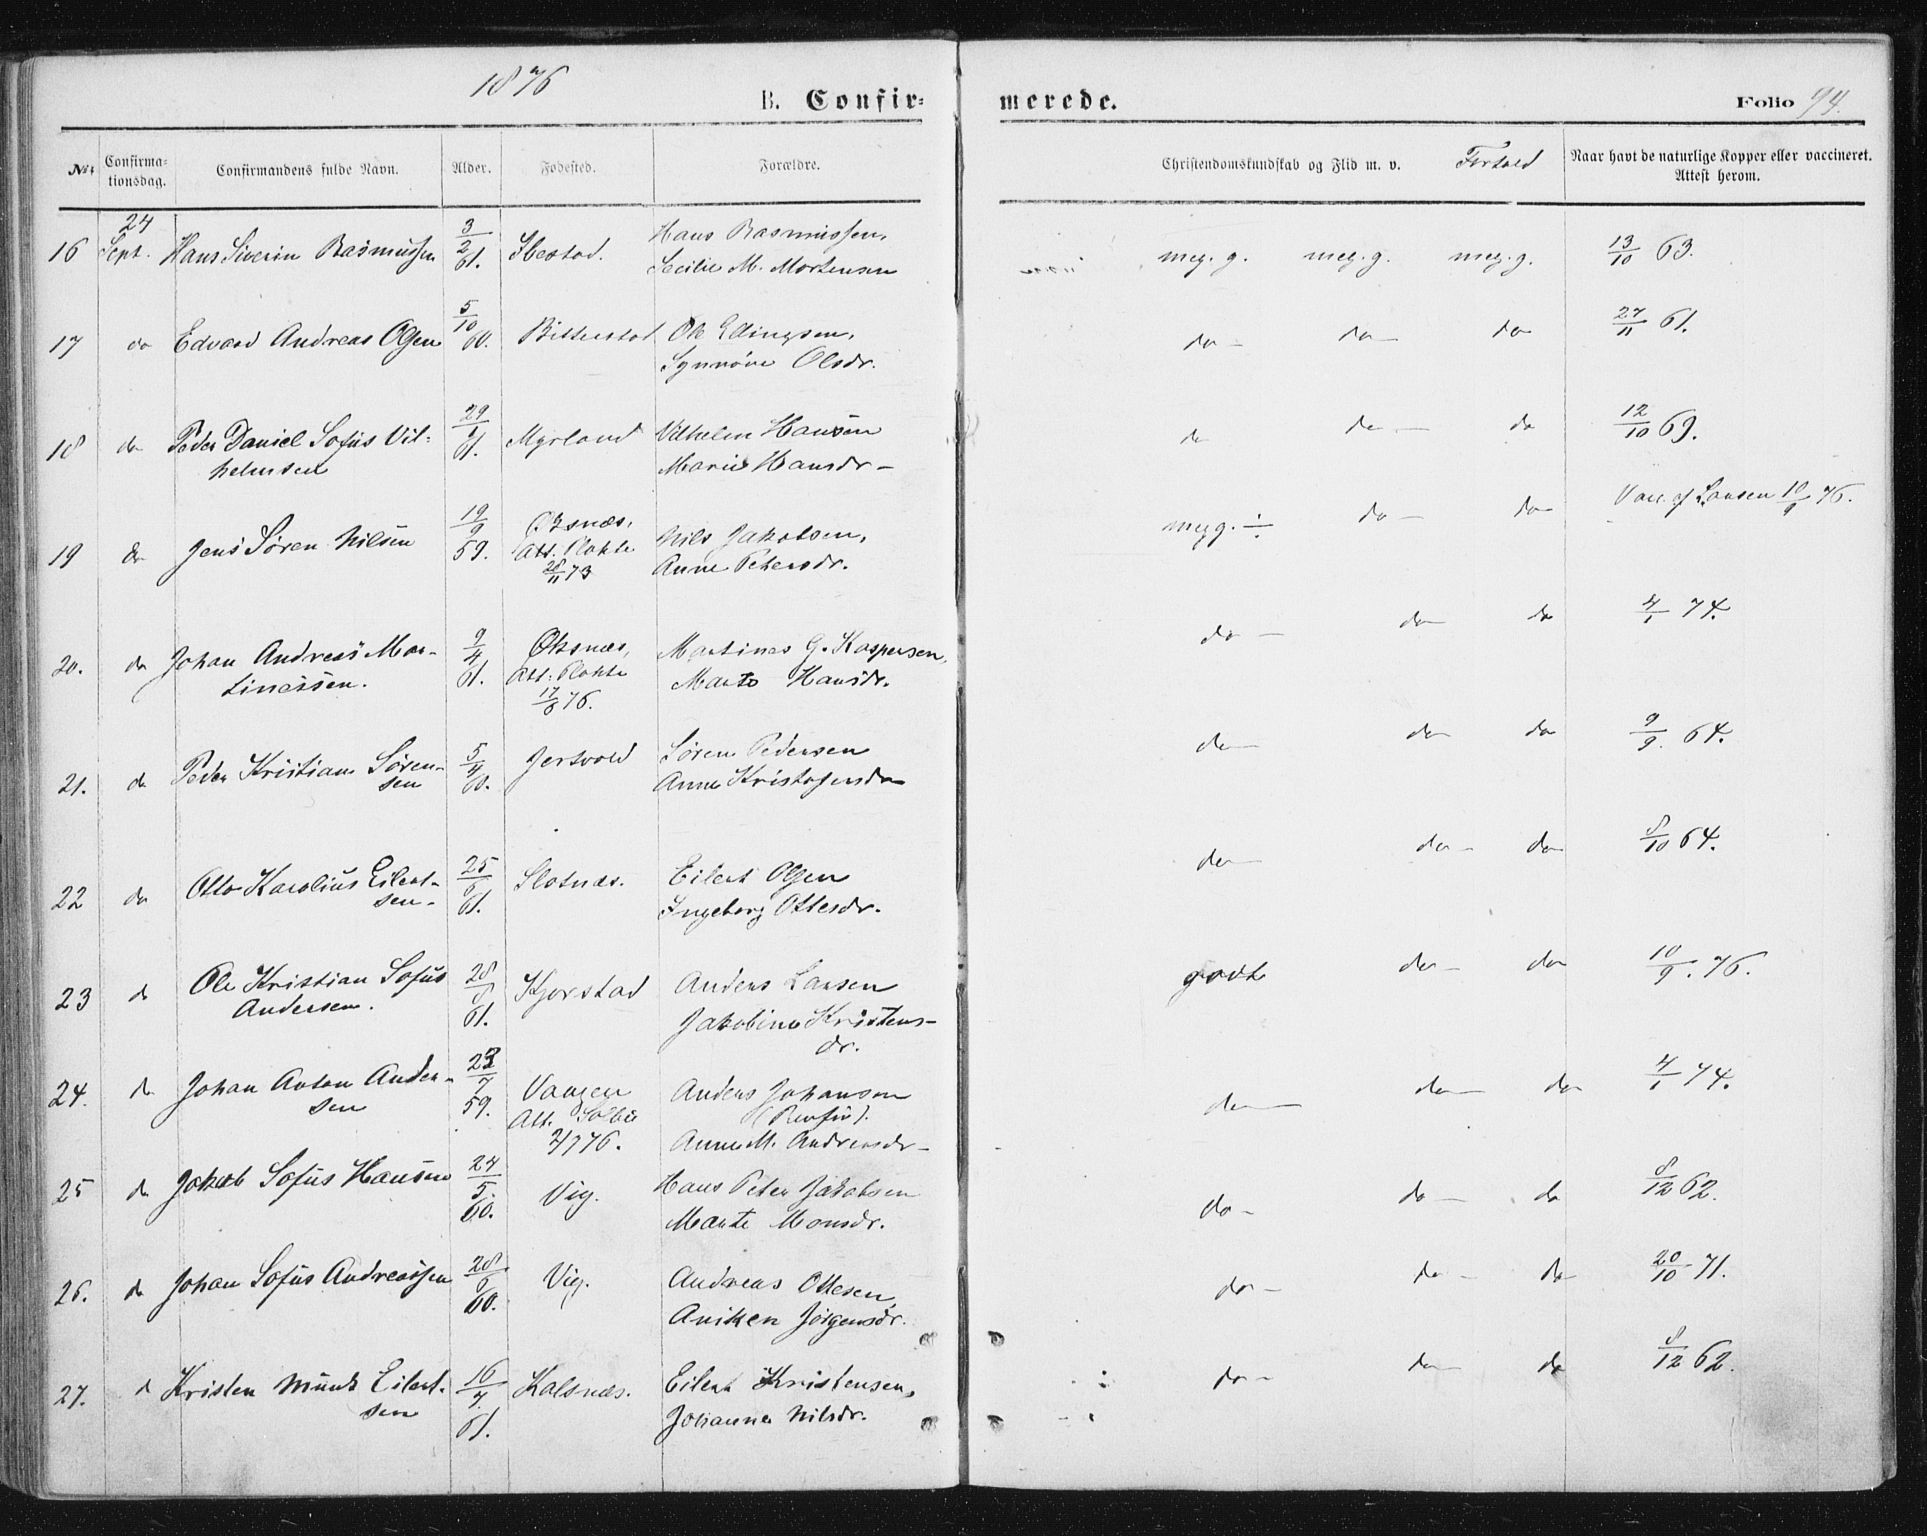 1876
B. Confir= merede. Folio 94.
No. Confirma=tionsdag. Confirmandens fulde Navn. Alder. Fødested. Forældre. Christendomskundskab og Flid m. v. Forhold Naar havt de naturlige Kopper eller vaccineret. Attest herom.
16 24 Sept. Hans Siverin Rasmussen 3/2 61. Ibestad. Hans Rasmussen, meg. g. meg. g. meg. g. 13/10 63.
Secilie M. Mortensen
17 do Edvard Andreas Olsen 5/10 60. Bitterstad Ole Ellingsen, do - do - do 27/11 61.
Synnöve Olsdr.
18 do Peder Daniel Sofus Vil= 29/1 61. Myrland Vilhelm Hansen do do - do 12/10 69.
helmsen Marie Hansdr -
19 do Jens Sören Nilsen 19/9 59. Öksnæs, Nils Jakobsen, meg g. ÷ do - do Vacc. af Larsen 10/9 76.
Att. Plahte Anne Petersdr.
28/11 73
20. do Johan Andreas Mar- 9/4 61. Öksnæs, Martines G. Kaspersen, do - do do 4/1 74.
tinessen. Att: Plahte Marto Hansdr.
17/6 76.
21. do Peder Kristian Sören- 5/4 60. Jertvold Sören Pedersen do do do 9/9. 64.
sen Anne Kristofersdr
22 do Otto Karolius Eilert- 25/6 61. Slotnæs. Eilert Olsen do do - do 8/10 64.
sen. Ingeborg Ottesdr.
23 do Ole Kristian Sofus 28/8 61. Kjørstad Anders Larsen godt do - do 10/9. 76.
Andersen. Jakobine Kristens-
dr.
24. do Johan Anton Ander- 23/7 59. Vaagen Anders Johansen do do do 4/1 74.
sen Att. (Renfin).
2/7 76. Anne M. Andreasdr -
25 do Jakob Sofus Hansen 24/5 60. Vig. Hans Peter Jakobsen do - do - do 8/12 62.
Marte Monsdr.
26. do Johan Sofus Andreassen 28/6 60. Vig. Andreas Ottesen do - do - do 20/10 71.
Aniken Jörgensdr.
27. d Kristen Munk Eilert- 16/7. 61. Kalsnæs. Eilert Kristensen, do - do do 8/12 62.
sen Johanna Nilsdr.